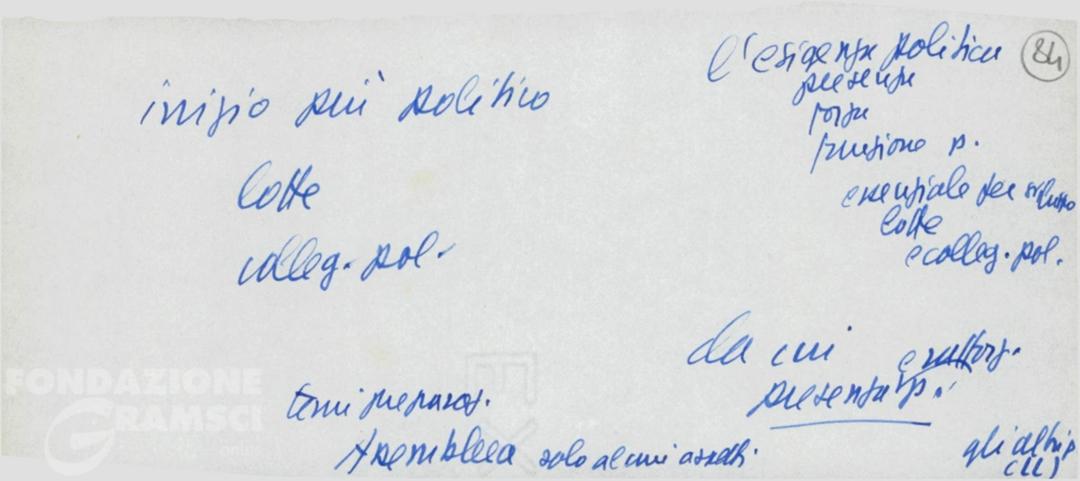 inizio più politico
lotte
colleg. pol.
l'esigenza politica
presenza
forza
funzione p.
essenziale per sviluppo
lotte
e colleg. pol.
84
da cui
presenza p.
temi preparaz.
Assemblea solo alcuni aspetti.
gli altri
FONDAZIONE
GRAMSCI